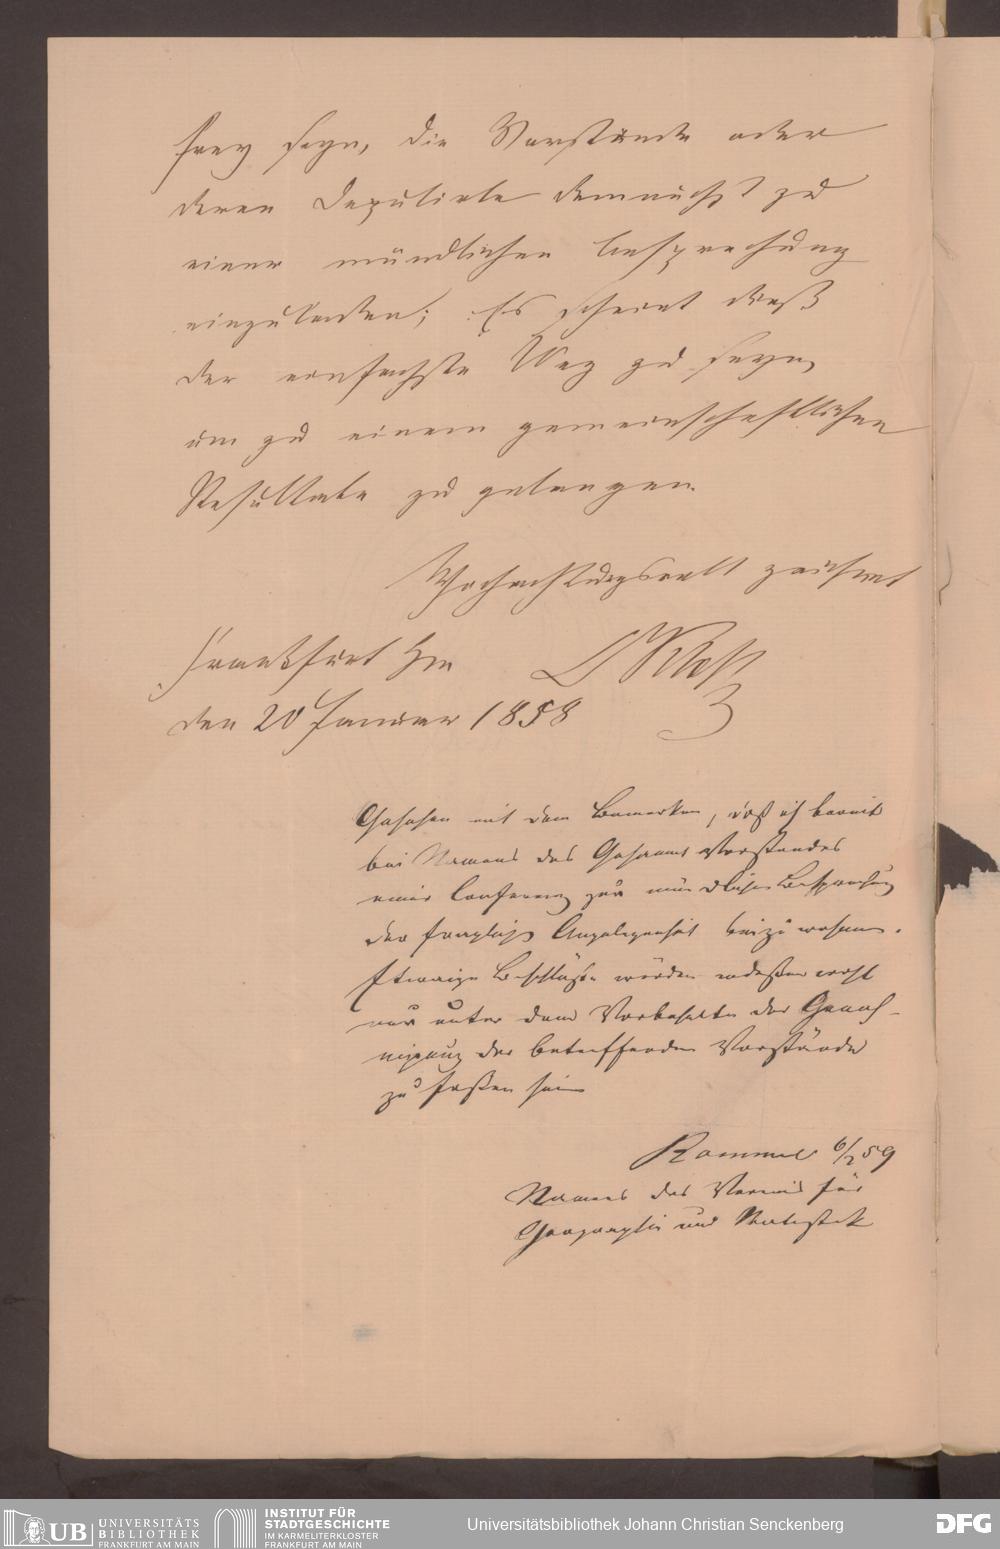 frey seyn, die Vorstände oder
deren Deputirte demnächst zu
einer mündlichen Besprechung
einzuladen; Es scheint dieß
der einfachste Weg zu seyn,
um zu einem gemeinschaftlichen
Resultate zu gelangen.
Hochachtungsvoll zeichnet
Frankfurt
den 20 Januar 1858
Gesehen mit dem Bemerken, daß ich bereit
bin Namens des Gesammt Vorstandes
einer Conferenz zur mündlichen Besprechung
der fraglichen Angelegenheit beizuwohnen.
Etwaige Beschlüße würden indeßen wohl
nur unter dem Vorbehalte der Geneh-
migung der betreffenden Vorstände
zu faßen sein
Rommel 6/2 59
Namens des Vereins für
Geographie und Statistik
UB UNIVERSITÄTS
BIBLIOTHEK
FRANKFURT AM MAIN
INSTITUT FÜR
STADTGESCHICHTE
IM KARMELITERKLOSTER
FRANKFURT AM MAIN
Universitätsbibliothek Johann Christian Senckenberg
DFG